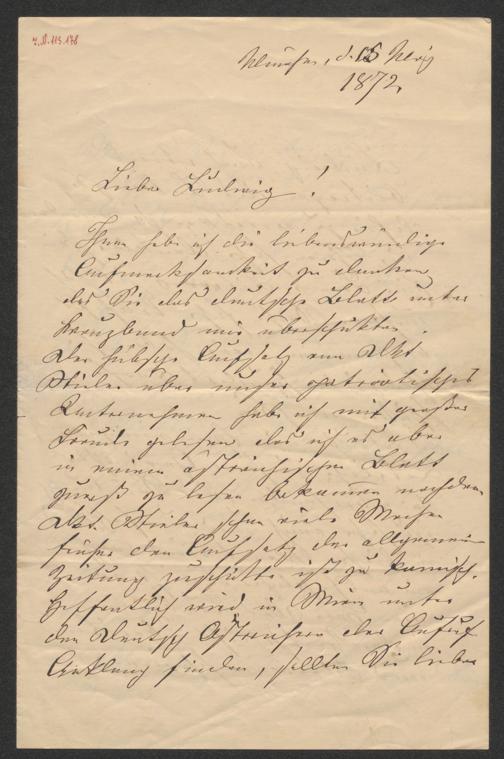 I.N. 113.178
München, d. 15 März
1872.
Lieber Ludwig!
Ihnen habe ich die liebenswürdige
Aufmerksamkeit zu danken
das Sie das deutsche Blatt unter
Kreuzband mir überschickten.
Der hübsche Aufsatz von
Stieler über unser patriotisches
Unternehmen habe ich mit großer
Freude gelesen, das ich es aber
in einem östreichischen Blatt
zuerst zu lesen bekommen nachdem
Stieler schon viele Wochen
früher den Aufsatz der allgemeinen
Zeitung zuschickte ist zu komisch.
Hoffentlich wird in Wien unter
den Deutsch Östreichern der Aufruf
Anklang finden, sollten Sie lieber